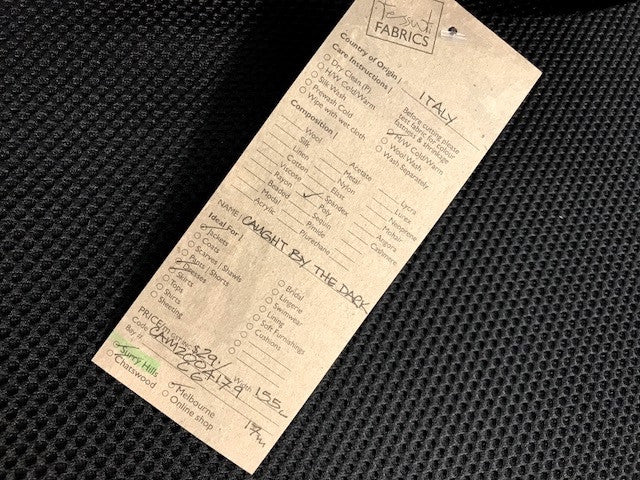 Tessuti
FABRICS
Country of Origin | ITALY
Care Instructions |
Before cutting please
test fabric for colour
fastness & shrinkage
Dry Clean (P)
H/W Cold/Warm
Silk Wash
Prewash Cold
Wipe with wet cloth
M/W Cold/Warm
Wool Wash
Wash Separately
Composition |
Wool
Silk
Linen
Cotton
Viscose
Rayon
Beaded
Modal
Acrylic
Acetate
Metal
Nylon
Elast
Spandex
✓ Poly
Sequin
Ramie
Polyurethane
Lycra
Lurex
Neoprene
Mohair
Angora
Cashmere
NAME | CAUGHT BY THE DARK
Ideal For |
Jackets
Coats
Scarves / Shawls
Pants / Shorts
Dresses
Skirts
Tops
Shirts
Sheeting
Bridal
Lingerie
Swimwear
Lining
Soft Furnishings
Cushions
PRICE $29 Width 155c
Code CAM2004179
C6
Buy it
Surry Hills
Chatswood
Melbourne
Online shop
17m